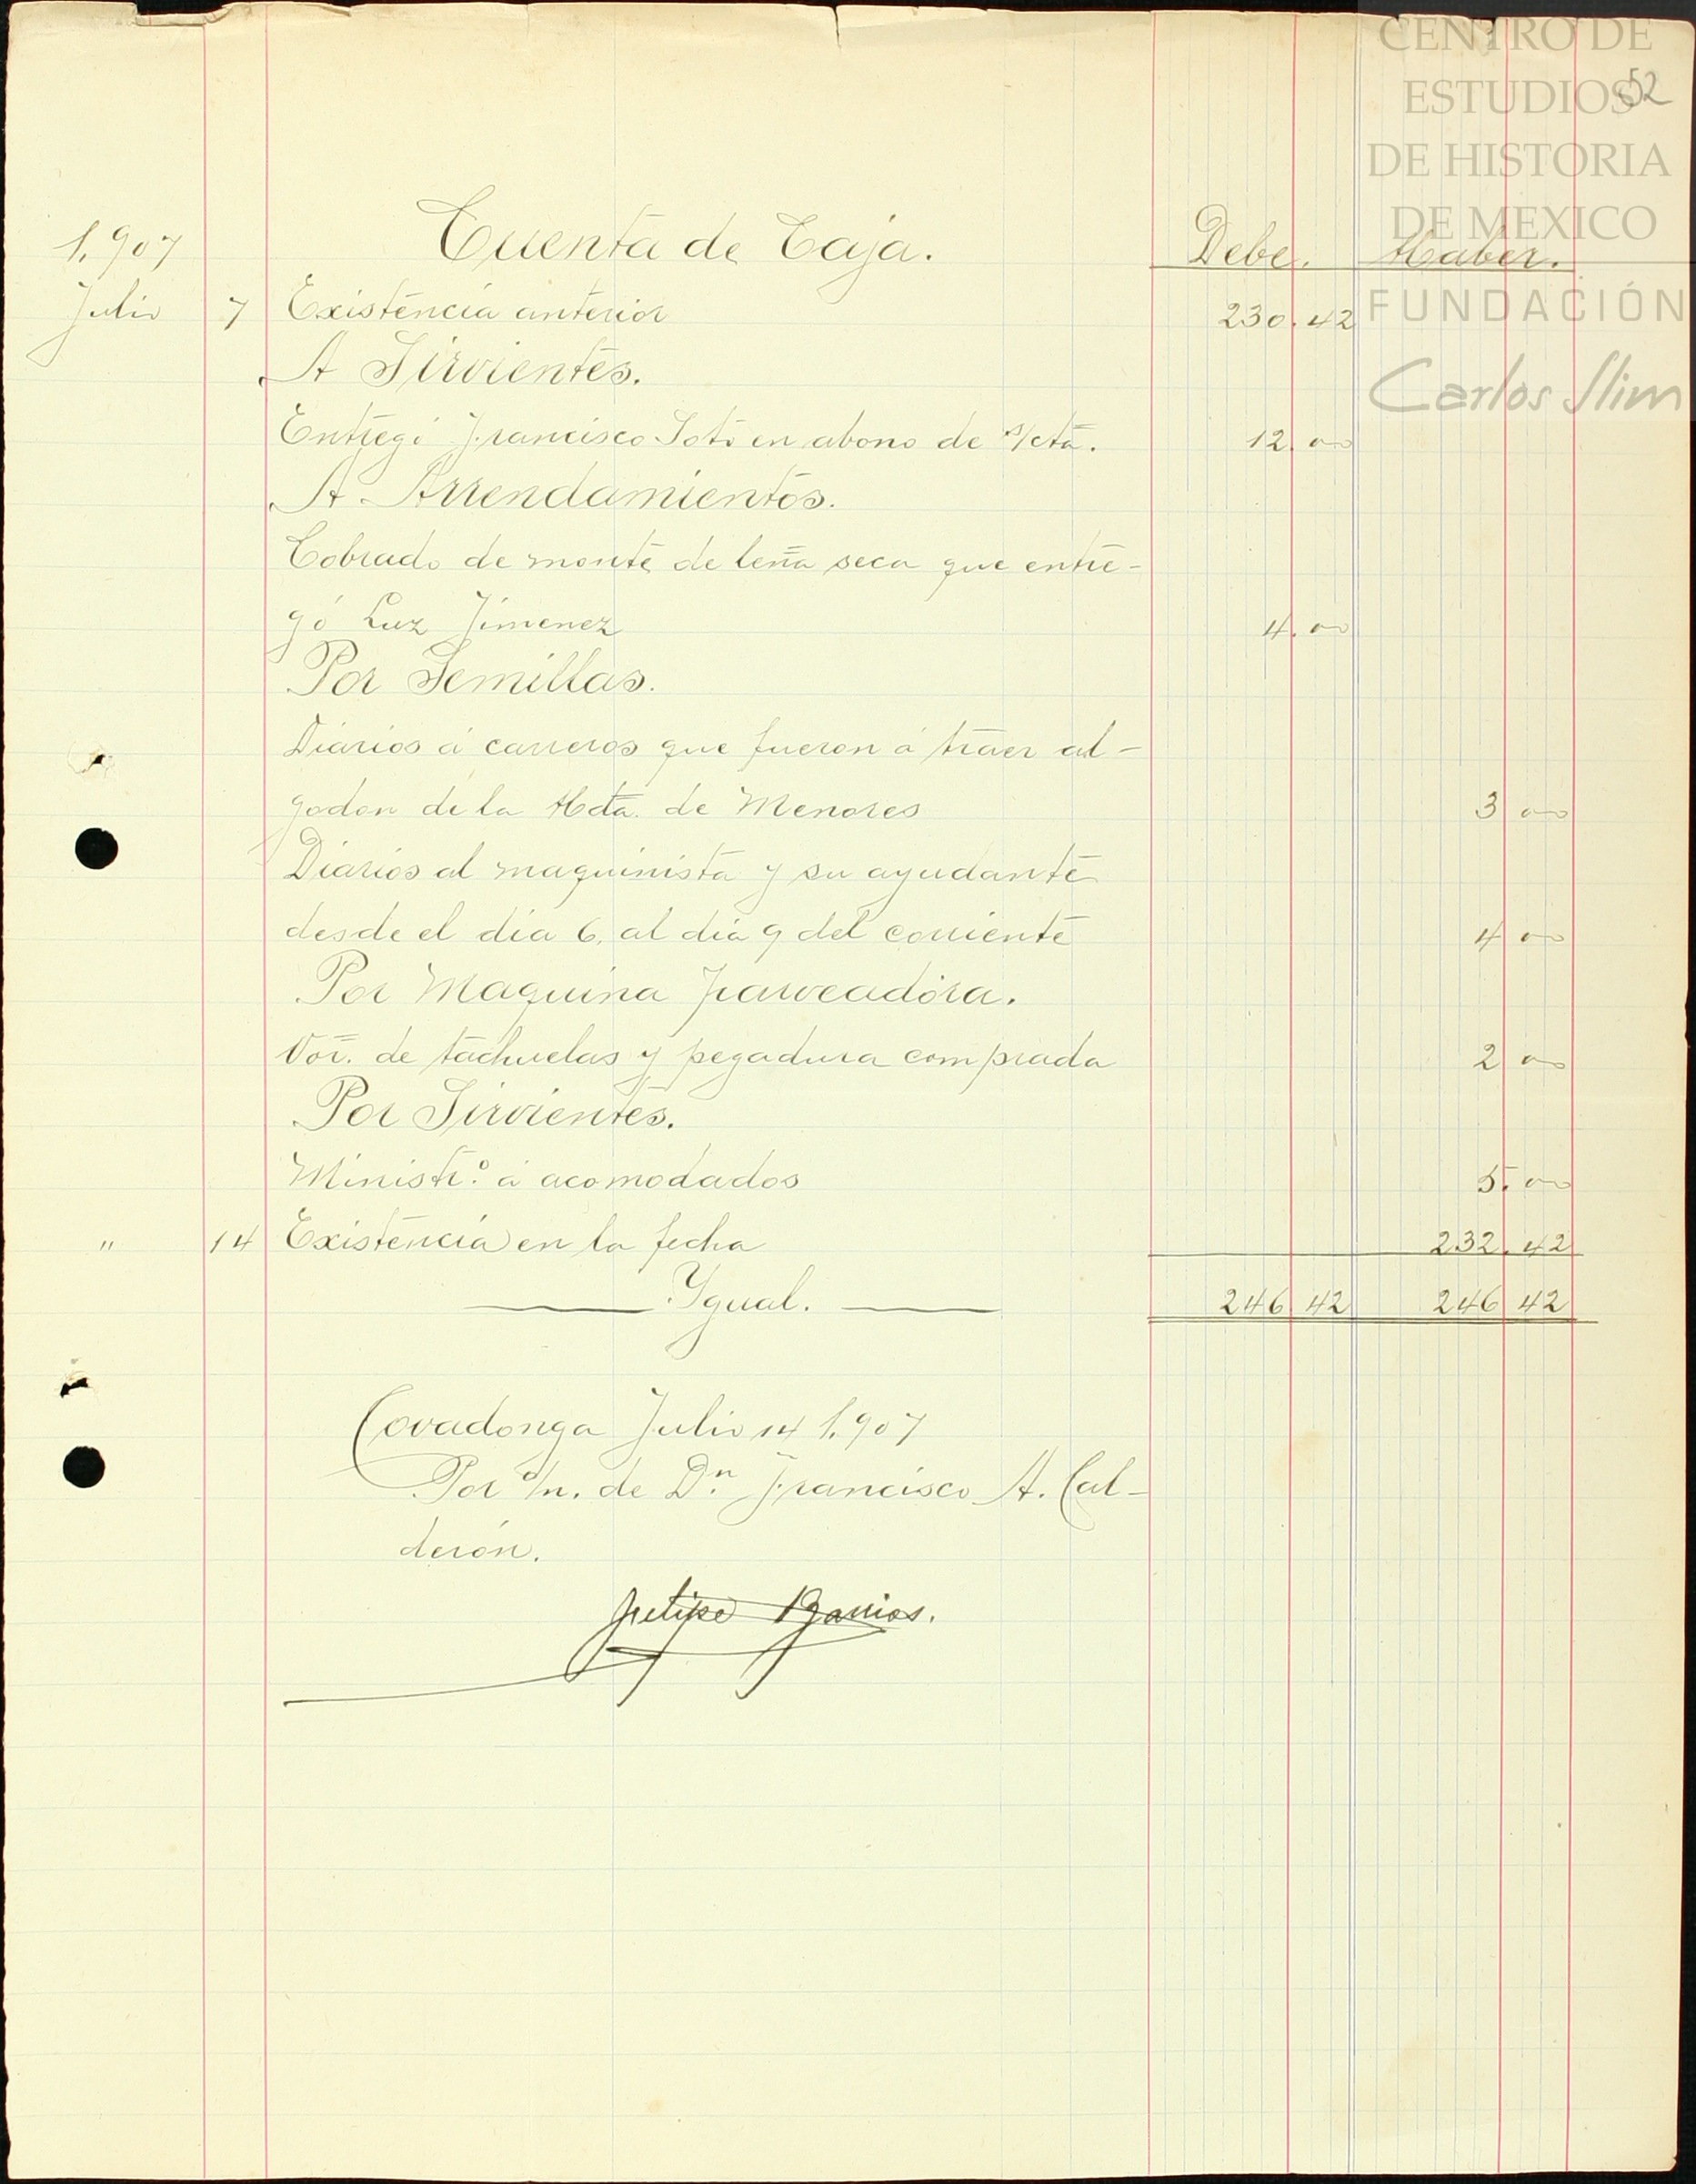 CENTRO DE
ESTUDIOS
52
DE HISTORIA
DE MEXICO
FUNDACIÓN
Carlos Slim
1,907 Cuenta de Caja. Debe. Haber.
Julio 7 Existencia anterior 230.42
A Sirvientes.
Entregó Francisco Soto en abono de s/cta. 12.00
A Arrendamientos.
Cobrado de monte de leña seca que entre-
gó Luz Jimenez 4.00
Por Semillas.
Diarios á carreros que fueron á traer al-
godon de la Hda. de Menores 3 00
Diarios al maquinista y su ayudante
desde el dia 6, al dia 9 del corriente 4 00
Por Maquina
Vor. de tachuelas y pegadura comprada 2 00
Por Sirvientes.
Ministr.º á acomodados 5.00
" 14 Existencia en la fecha 232.42
Ygual. 246 42 246 42
Covadonga Julio 14 1,907
Por o/n. de Dn. Francisco A. Cal-
derón.
Felipe Barrios.